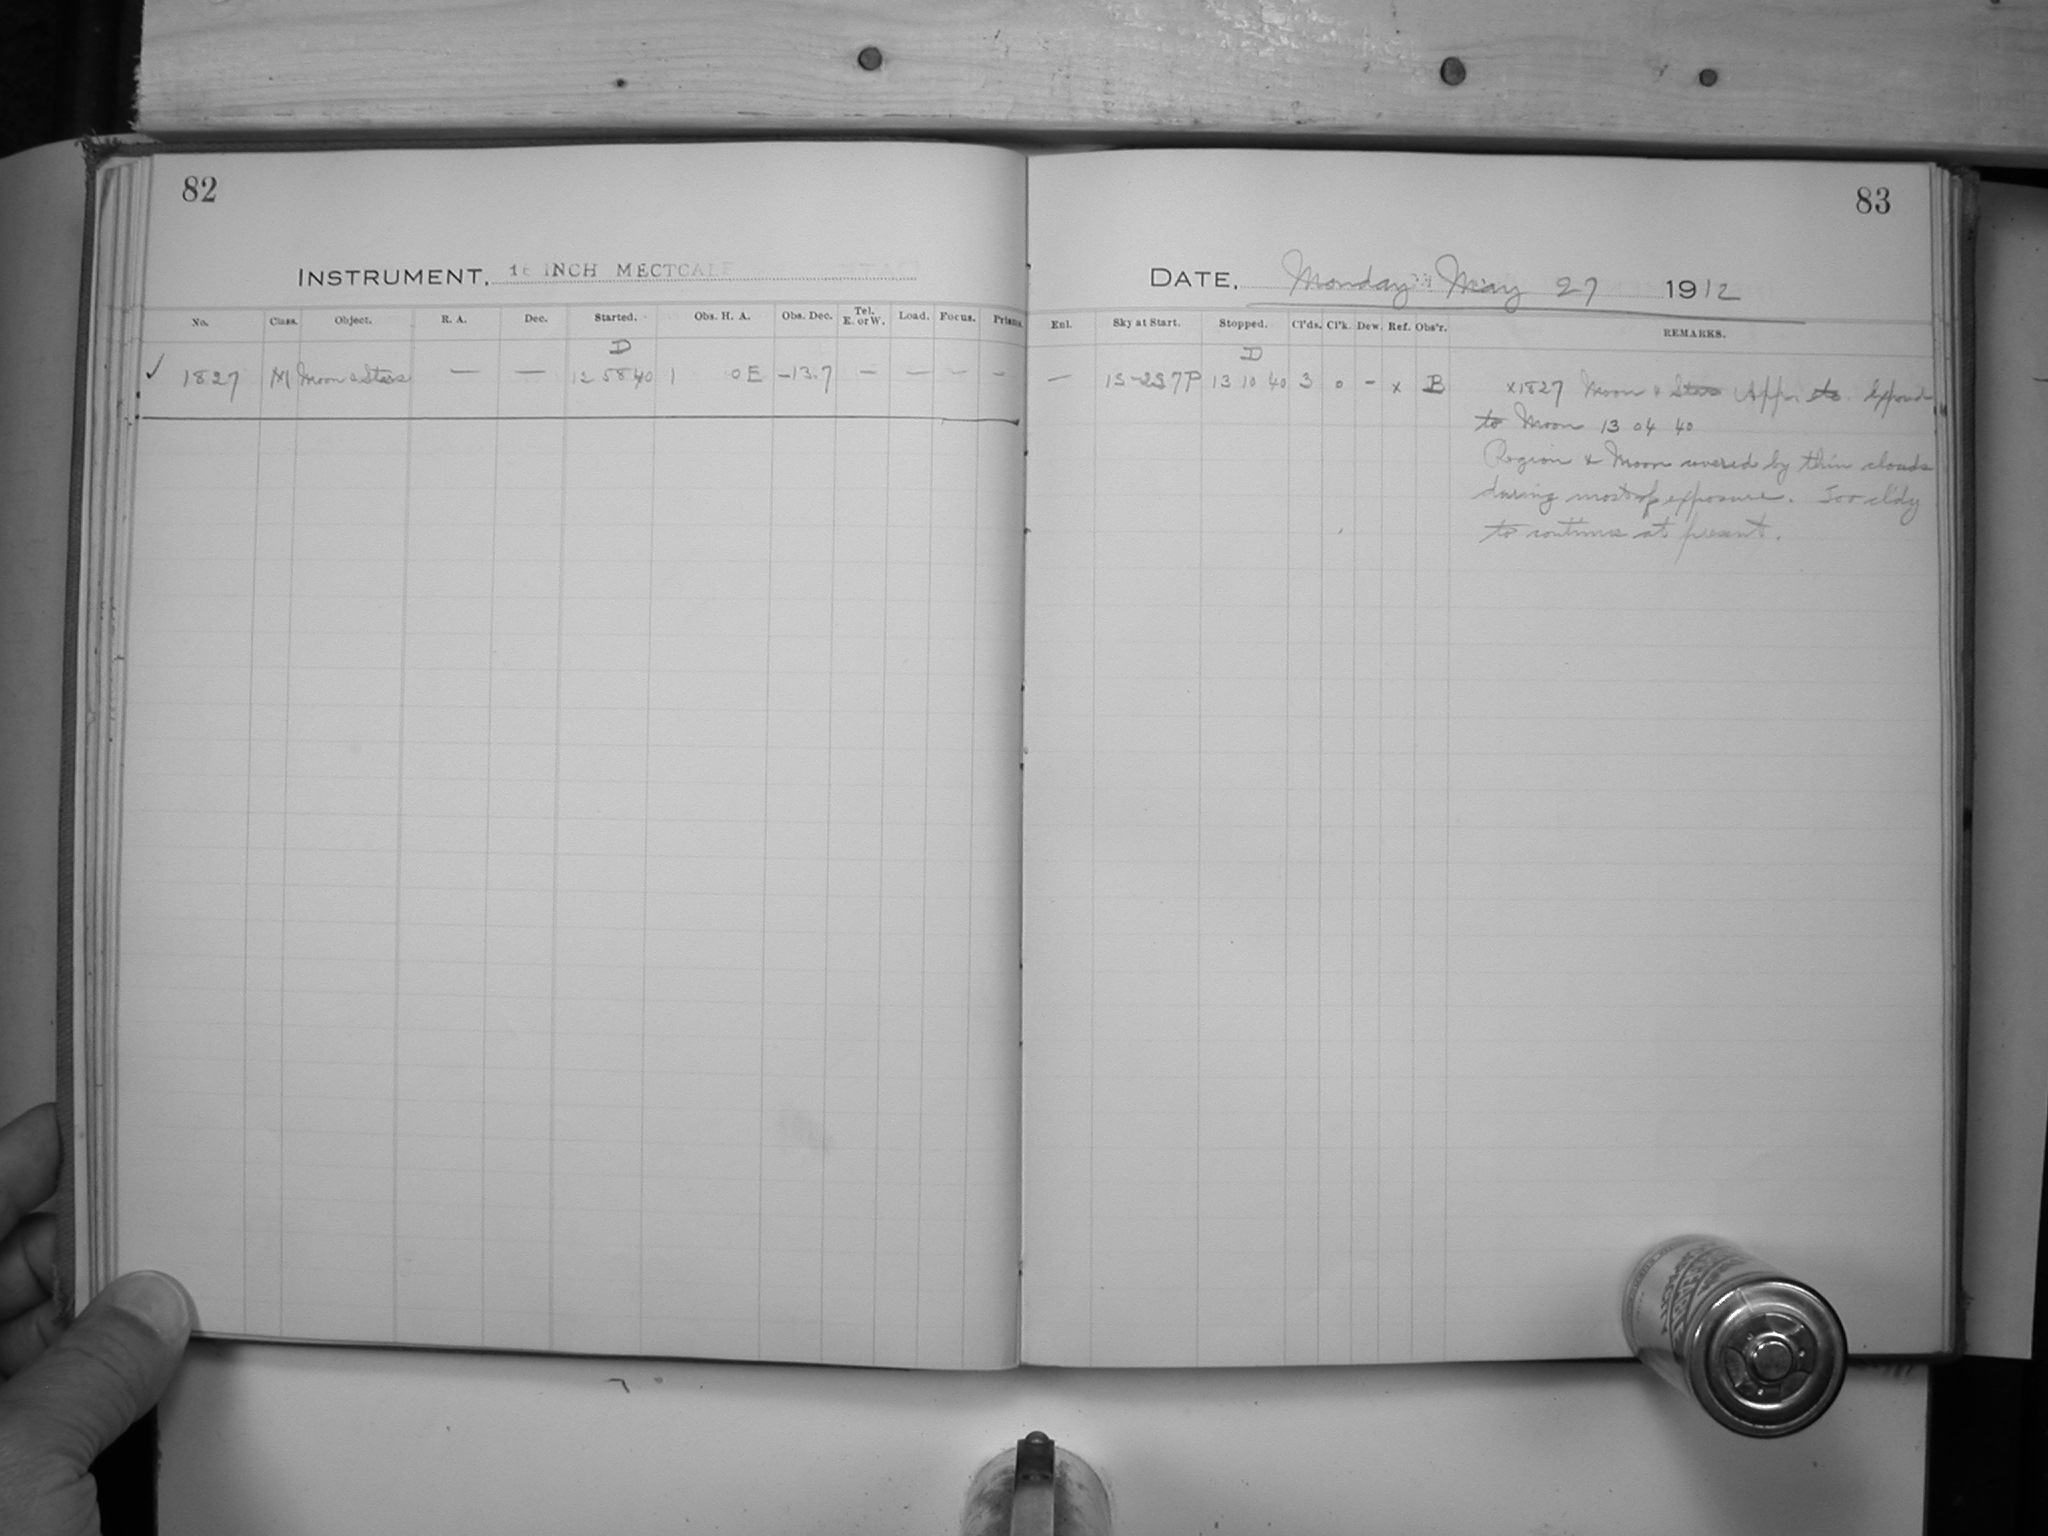 82
INSTRUMENT, 16 INCH METCALF
No. Class. Object. R. A. Dec. Started. Obs. H. A. Obs. Dec. Tel. E. or W. Load. Focus. Prisms.
D
✓ 1827 M Moon & Stars — — 12 58 40 1 0 E -13.7 — — — —
83
DATE, Monday May 27 1912
Enl. Sky at Start. Stopped. Cl'ds. Cl'k. Dew. Ref. Obs'r. REMARKS.
D
— 1S-2S7P 13 10 40 3 0 - x B x1827 Moon & Stars Expoed
to Moon 13 04 40
Region & Moon covered by thin clouds
during most of exposure. Too cl'dy
to continue at present.